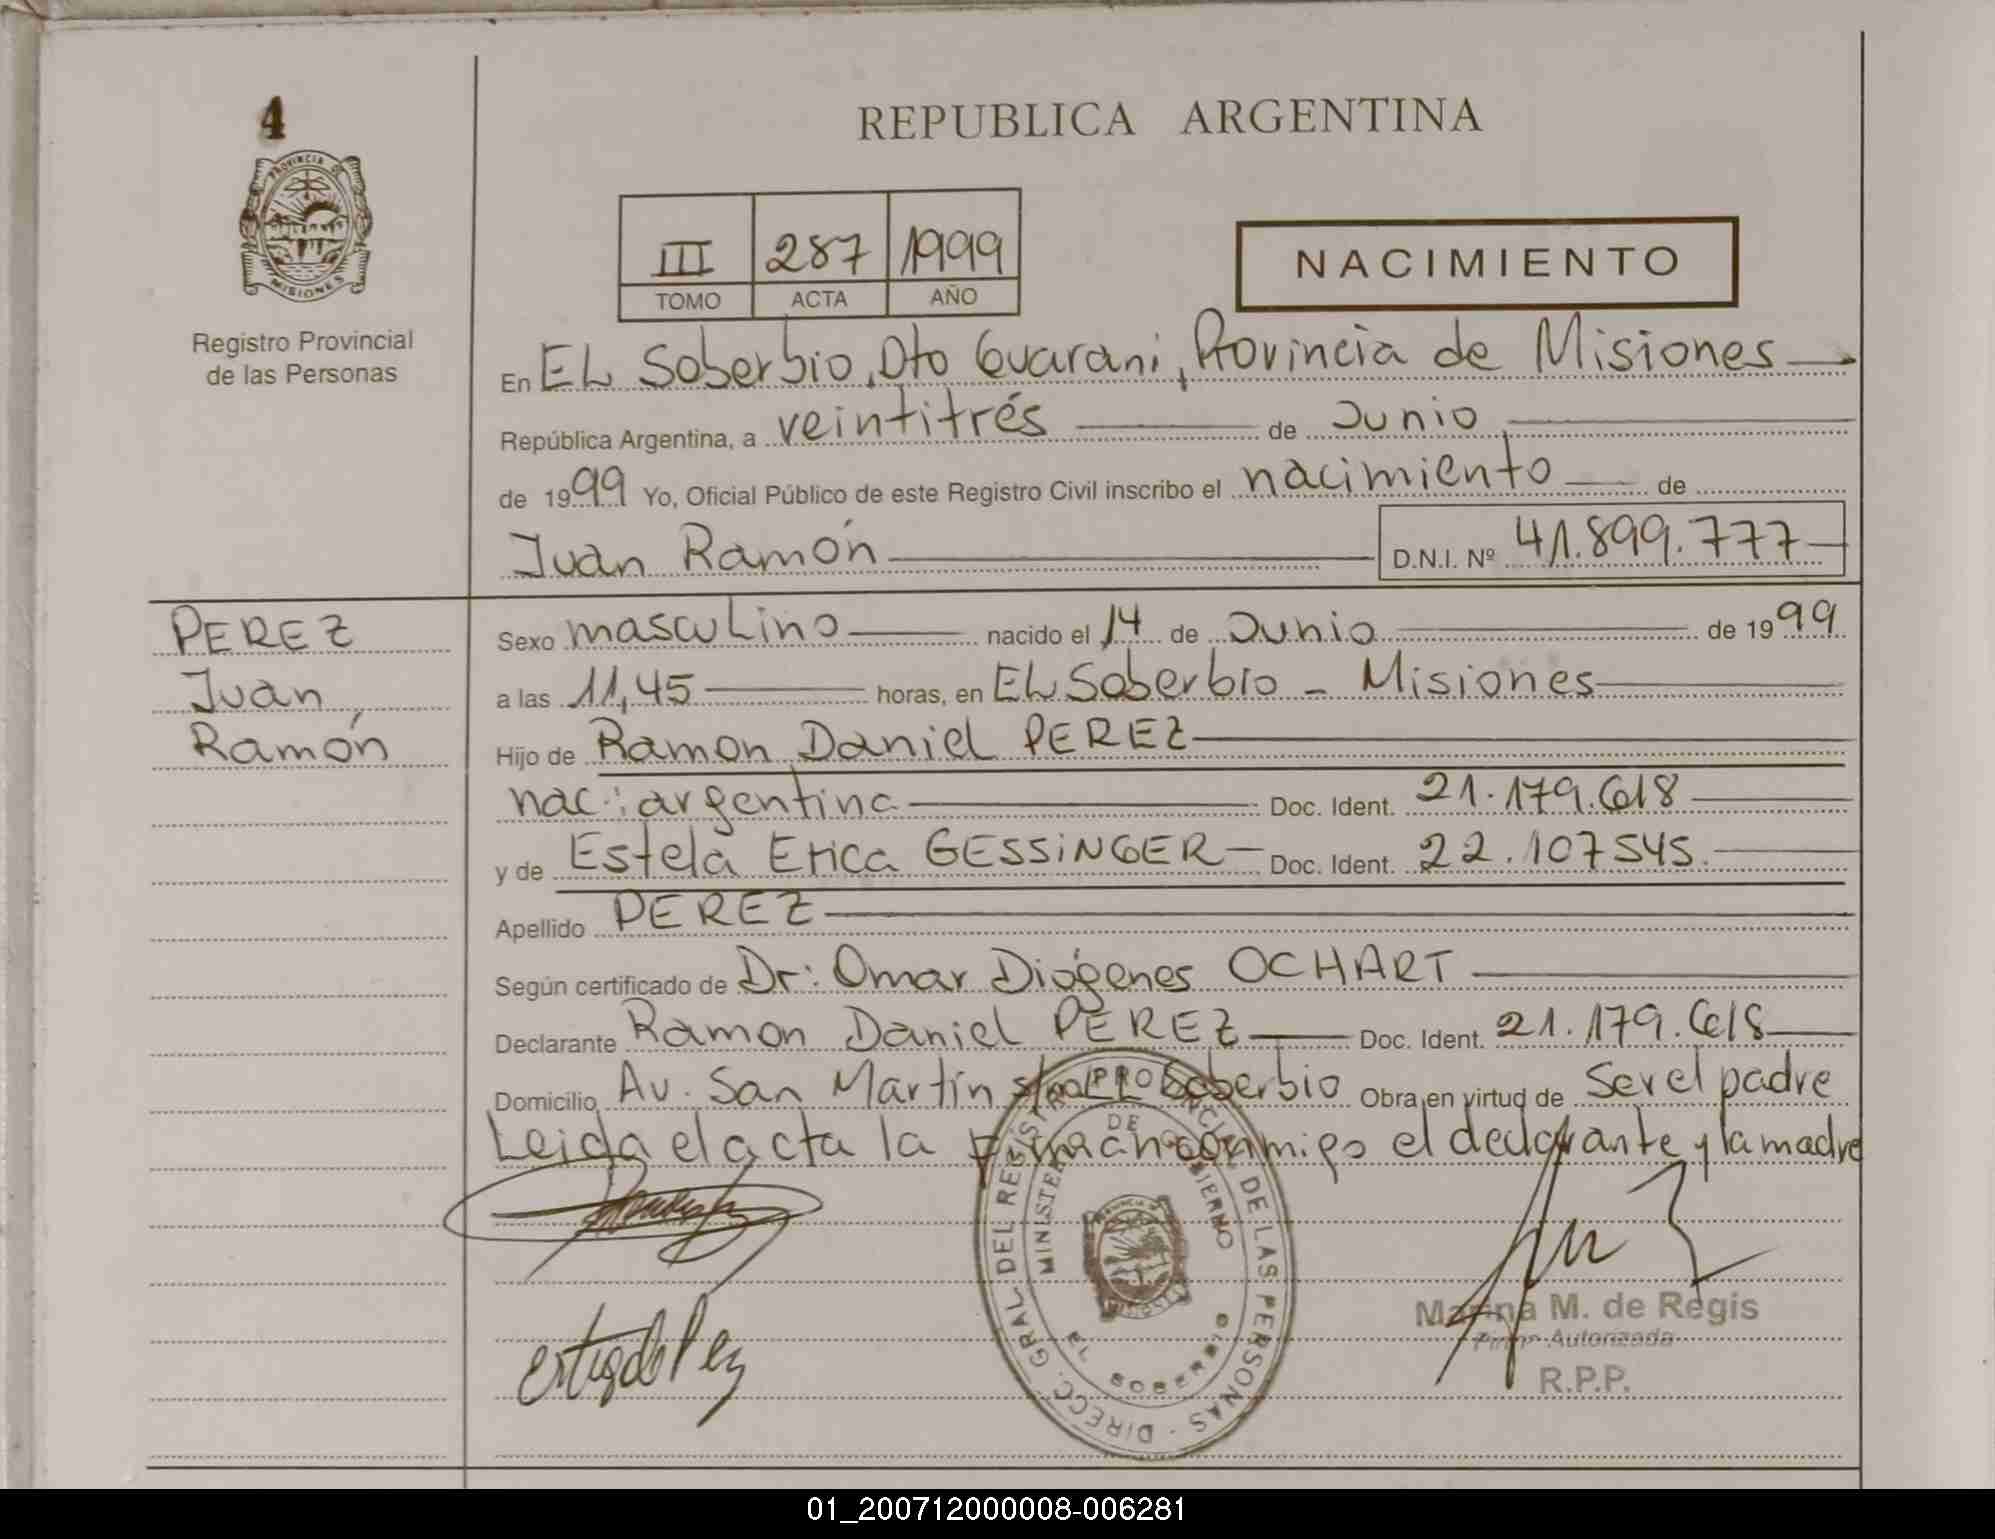 4
PROVINCIA DE
MISIONES
Registro Provincial
de las Personas
REPUBLICA ARGENTINA
III 287 1999
TOMO ACTA AÑO
NACIMIENTO
En EL Soberbio, Dto Guarani, Provincia de Misiones
República Argentina, a veintitrés de Junio
de 1999 Yo, Oficial Público de este Registro Civil inscribo el nacimiento de
Juan Ramón D.N.I. Nº 41.899.777
PEREZ
Juan
Ramón
Sexo masculino nacido el 14 de Junio de 1999
a las 11,45 horas, en EL Soberbio - Misiones
Hijo de Ramon Daniel PEREZ
nac: argentina Doc. Ident. 21.179.618
y de Estela Erica GESSiNGER Doc. Ident. 22.107545.
Apellido PEREZ
Según certificado de Dr: Omar Diógenes OCHART
Declarante Ramon Daniel PEREZ Doc. Ident. 21.179.618
Domicilio Av. San Martín s/nº EL Soberbio Obra en virtud de Ser el padre
Leida el acta la firman conmigo el declarante y la madre
DIRECC. GRAL DEL REGISTRO PROVINCIAL DE LAS PERSONAS
MINISTERIO DE GOBIERNO
EL SOBERBIO
Marina M. de Regis
Firma Autorizada
R.P.P.
01_200712000008-006281